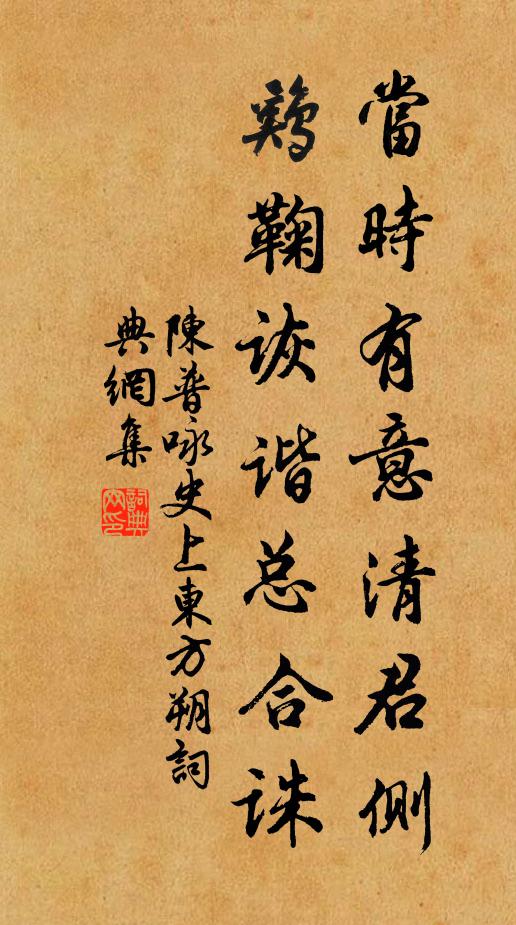 當時有意清君側
鷄鞠詼谐总合誅
陳普咏史上東方朔詞
典網集
詞典網印